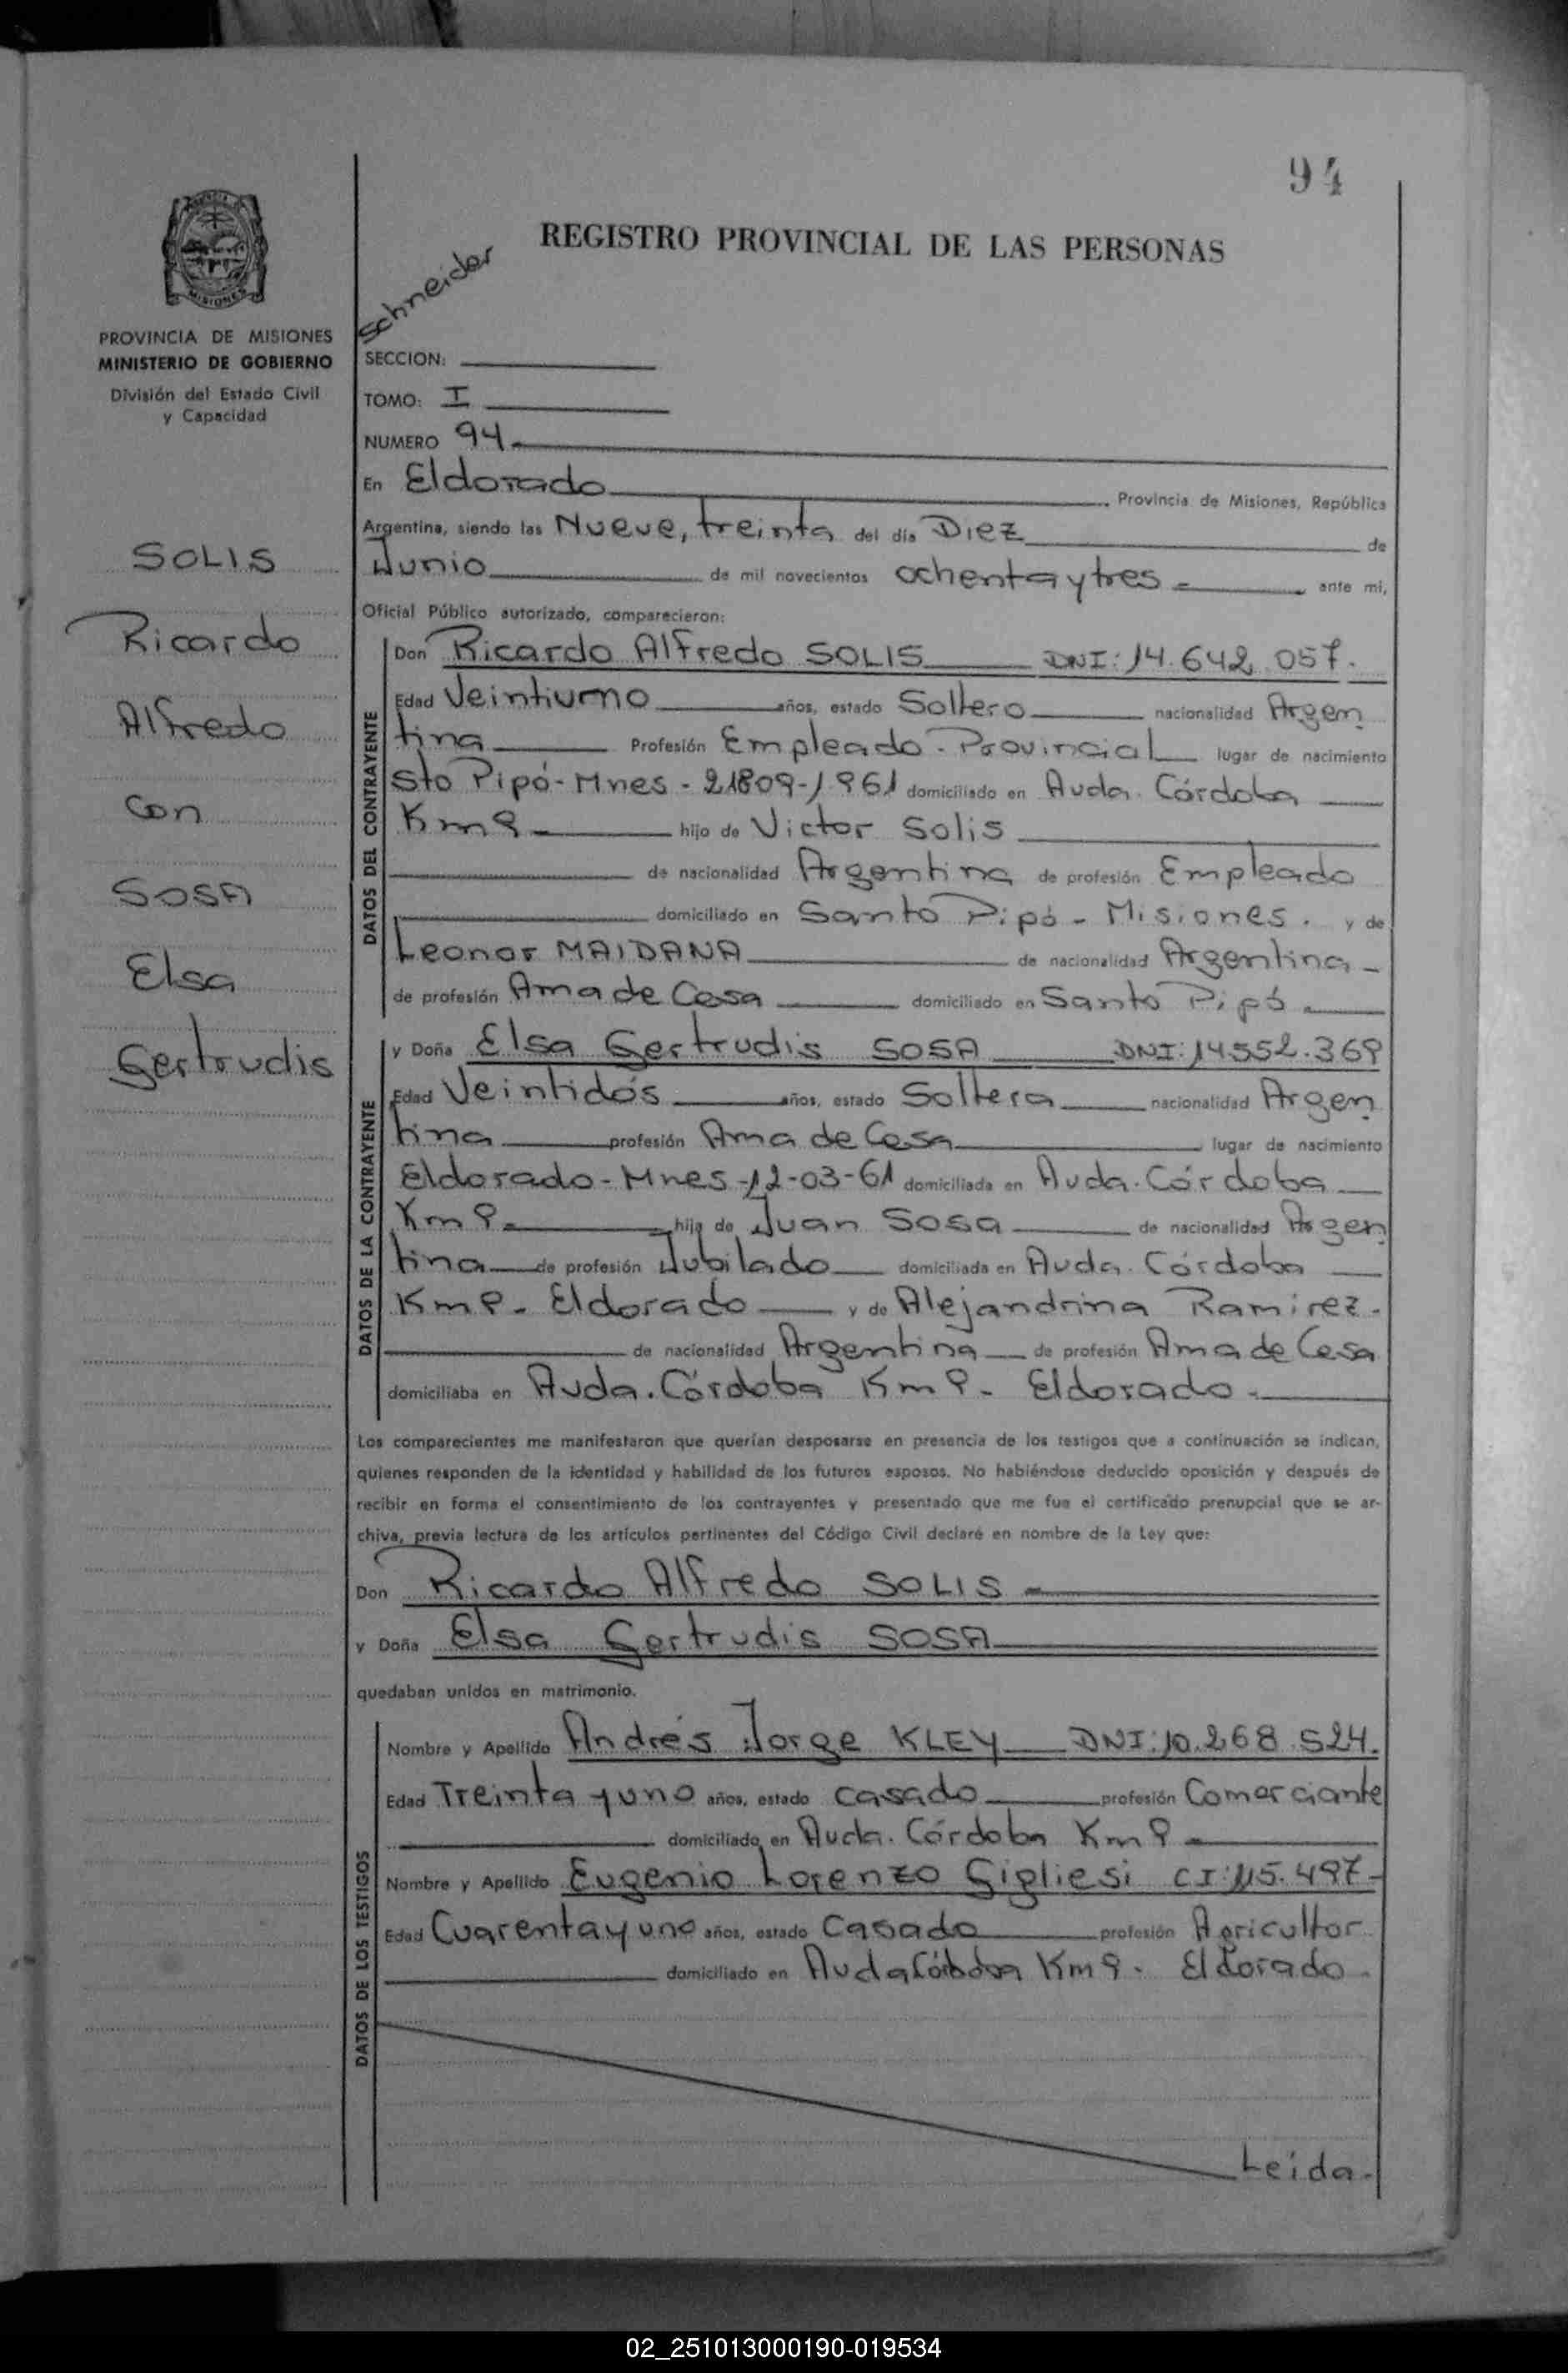 94
REGISTRO PROVINCIAL DE LAS PERSONAS
Schneider
MISIONES
PROVINCIA DE MISIONES
MINISTERIO DE GOBIERNO
División del Estado Civil
y Capacidad
SECCION:
TOMO: I
NUMERO 94
En Eldorado Provincia de Misiones, República
Argentina, siendo las Nueve, treinta del día Diez de
Junio de mil novecientos ochenta y tres ante mi,
Oficial Público autorizado, comparecieron:
SOLIS
Ricardo
Alfredo
con
SOSA
Elsa
Gertrudis
DATOS DEL CONTRAYENTE
Don Ricardo Alfredo SOLIS DNI: 14.642.057.
Edad Veintiuno años, estado Soltero nacionalidad Argen
tina Profesión Empleado-Provincial lugar de nacimiento
Sto Pipó-Mnes - domiciliado en Avda. Córdoba
Km 9 hijo de Victor Solis
de nacionalidad Argentina de profesión Empleado
domiciliado en Santo Pipó - Misiones. y de
Leonor MAIDANA de nacionalidad Argentina -
de profesión Ama de Casa domiciliado en Santo Pipó
DATOS DE LA CONTRAYENTE
y Doña Elsa Gertrudis SOSA DNI: 14.552.369
Edad Veintidós años, estado Soltera nacionalidad Argen
tina profesión Ama de Casa lugar de nacimiento
Eldorado-Mnes-12-03-61 domiciliada en Avda. Córdoba
Km 9 hija de Juan Sosa de nacionalidad Argen
tina de profesión Jubilado domiciliada en Avda. Córdoba
Km 9 - Eldorado y de Alejandrina Ramirez-
de nacionalidad Argentina de profesión Ama de Casa
domiciliaba en Avda. Córdoba Km 9 - Eldorado
Los comparecientes me manifestaron que querían desposarse en presencia de los testigos que a continuación se indican,
quienes responden de la identidad y habilidad de los futuros esposos. No habiéndose deducido oposición y después de
recibir en forma el consentimiento de los contrayentes y presentado que me fue el certificado prenupcial que se ar-
chiva, previa lectura de los artículos pertinentes del Código Civil declaré en nombre de la Ley que:
Don Ricardo Alfredo SOLIS
y Doña Elsa Gertrudis SOSA
quedaban unidos en matrimonio.
DATOS DE LOS TESTIGOS
Nombre y Apellido Andrés Jorge KLEY DNI: 10.268.524.
Edad Treinta y uno años, estado casado profesión Comerciante
domiciliado en Avda. Córdoba Km 9
Nombre y Apellido Eugenio Lorenzo Gigliesi CI: 115.497-
Edad Cuarenta y uno años, estado Casado profesión Agricultor
domiciliado en Avda Córdoba Km 9 - Eldorado
Leida.
02_251013000190-019534